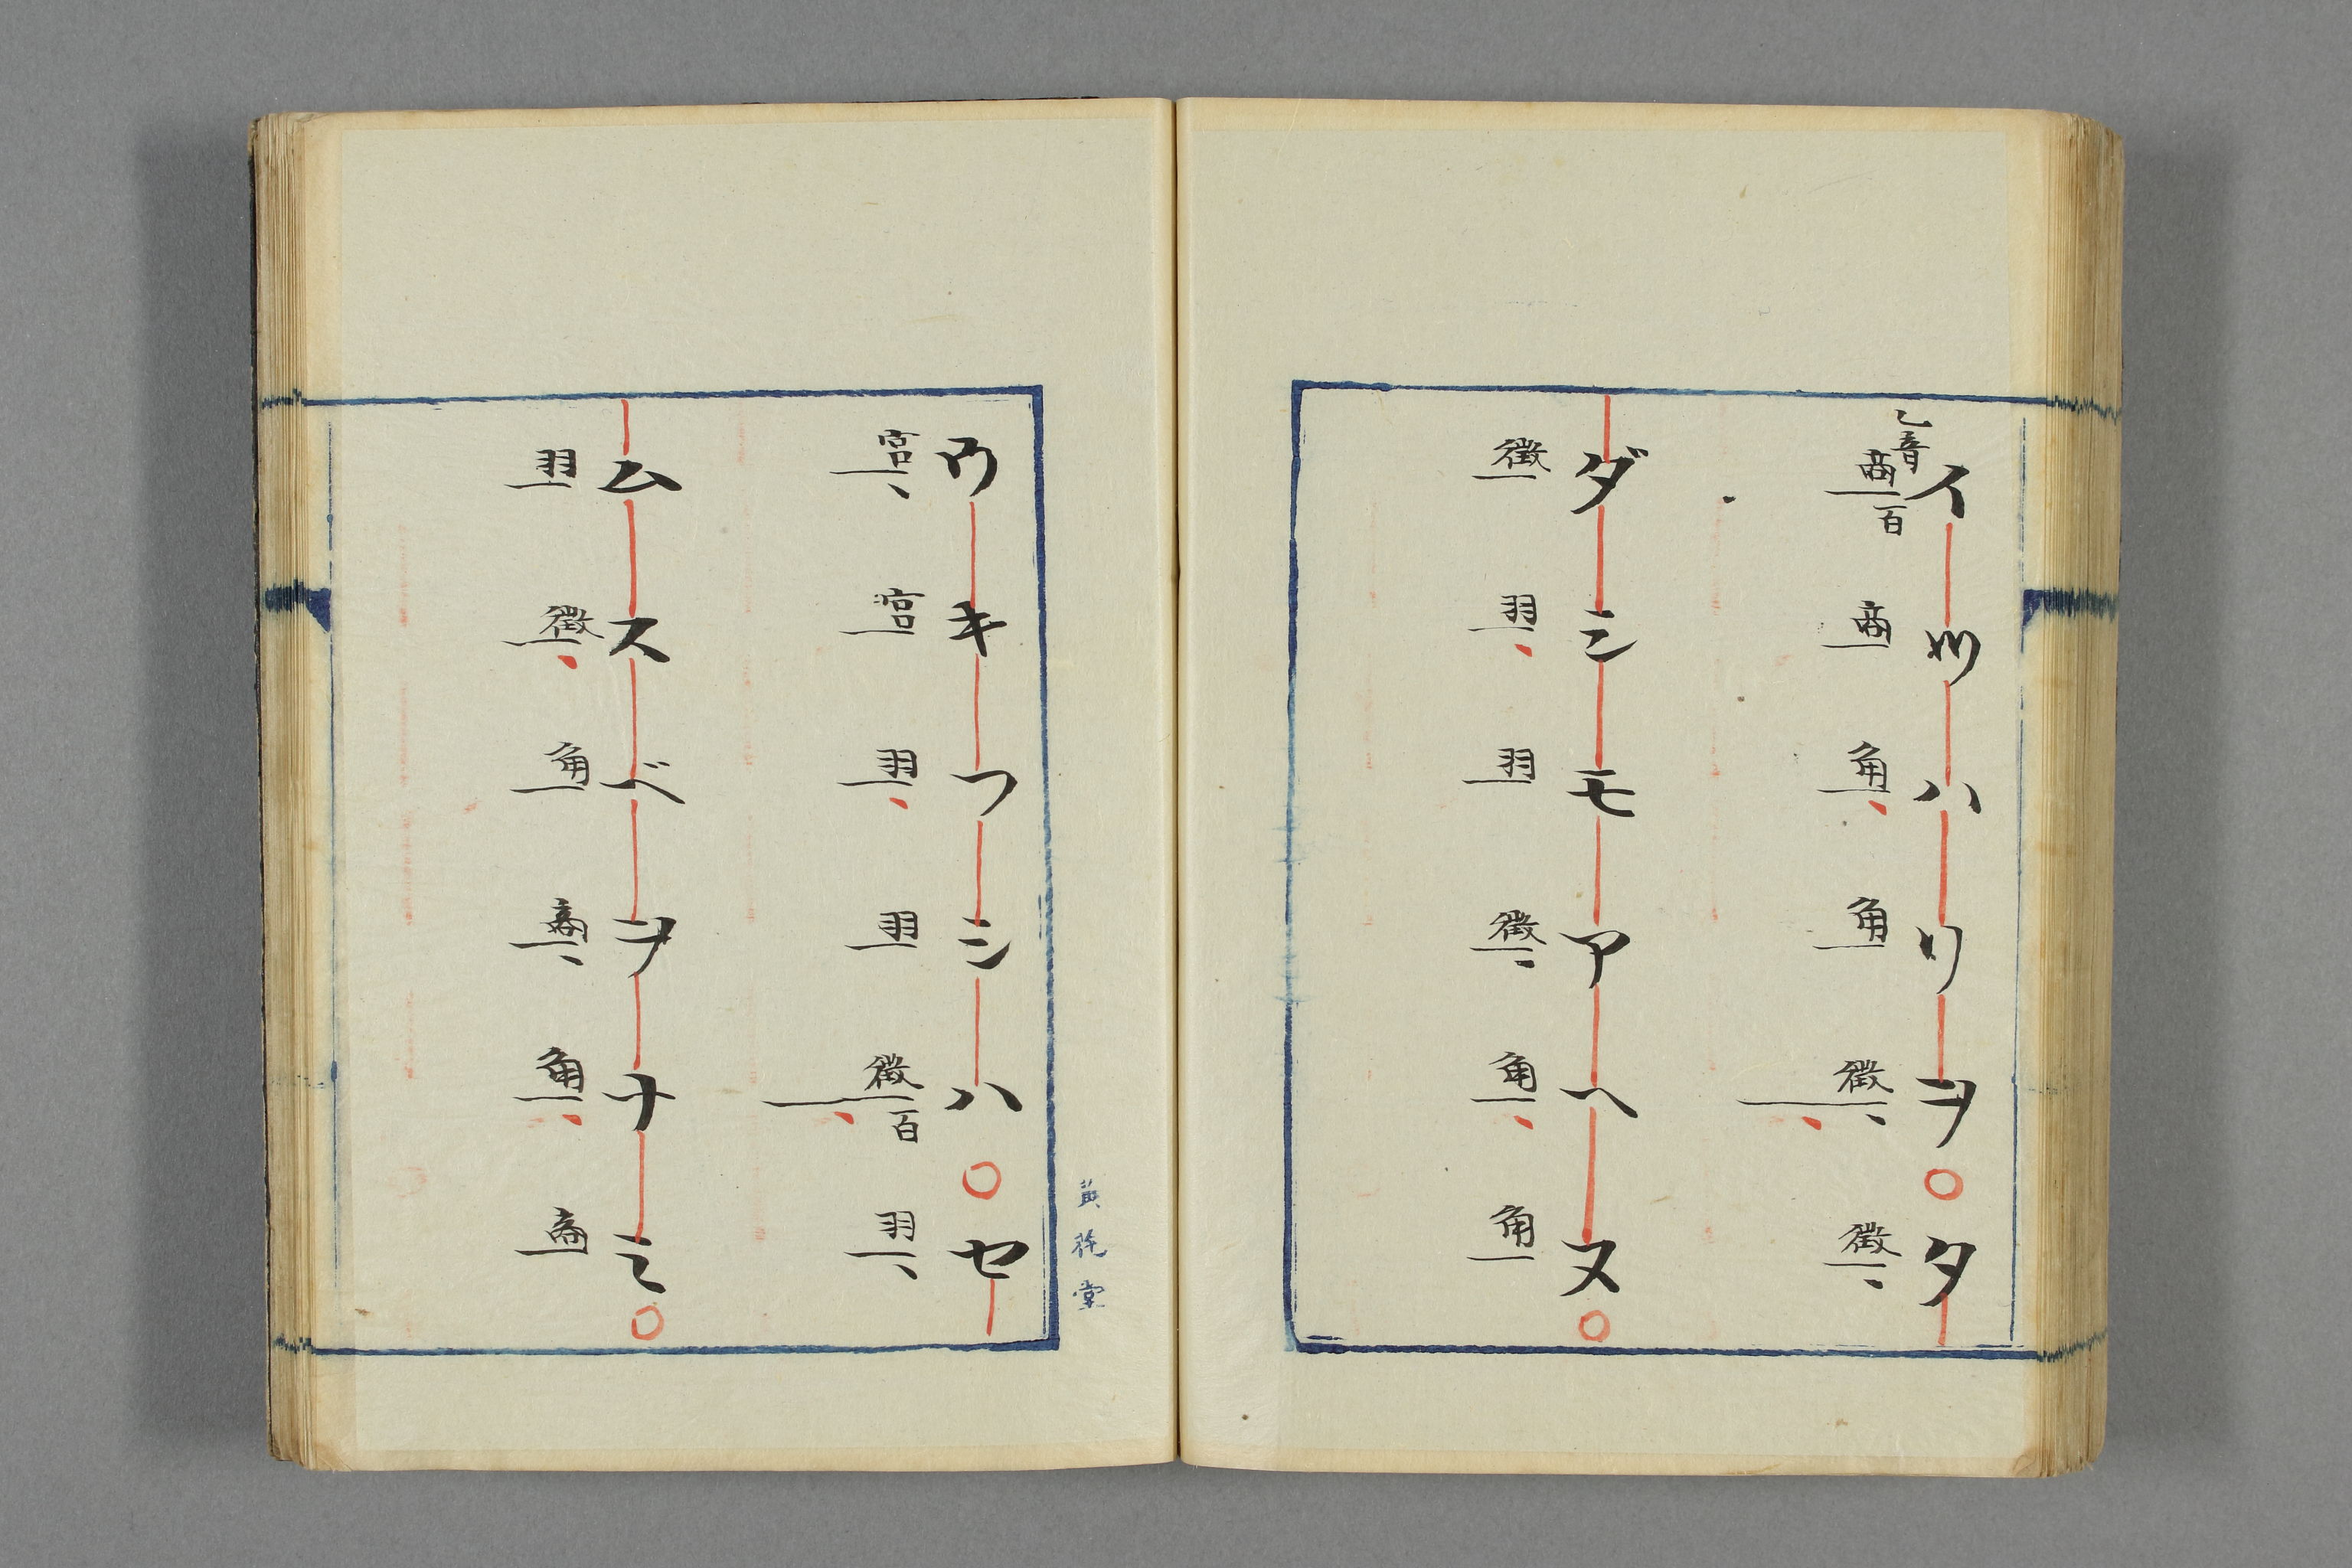 乙音
イツハリヲ○タ
商百 商 角 角 徴 徴
ダシモアヘヌ○
徴 羽 羽 徴 角 角
ウキフシハ○セ
宮 宮 羽 羽 徴百 羽
ムスベヲナミ○
羽 徴 角 商 角 商